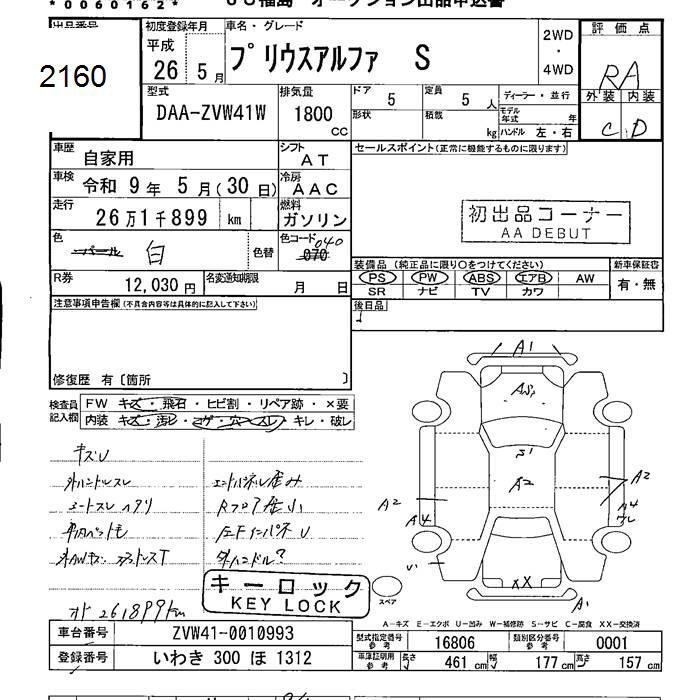 *0060162*
出品番号
2160
初度登録年月
平成
26 5月
車名・グレード
プリウスアルファ S
2WD
・
4WD
評価点
RA
外装 内装
C D
型式
DAA-ZVW41W
排気量
1800
CC
ドア 5
形状
定員 5人
積載 kg
ディーラー・並行
モデル年式 年
ハンドル 左・右
車歴
自家用
シフト
AT
車検
令和 9年 5月(30日)
冷房
AAC
走行
26万1千899 km
燃料
ガソリン
色
パール 白
色替
色コード 040
070
R券
12,030円
名変通知期限
月 日
セールスポイント(正常に機能するものに限ります)
初出品コーナー
AA DEBUT
装備品(純正品に限り○をつけてください)
PS PW ABS エアB AW
SR ナビ TV カワ
新車保証書
有・無
後日品
注意事項申告欄(不具合内容等は具体的に記入して下さい)
修復歴 有〔箇所 〕
検査員記入欄
FW キズ・飛石・ヒビ割・リペア跡・×要
内装 キズ・汚レ・コゲ・穴・スレ・キレ・破レ
キズU
エンドパネル歪み
キーロック
KEY LOCK
オド 261899km
A1
A2
A2
A2
A4
A4
XX
A1
スペア
A-キズ E-エクボ U-凹み W-補修跡 S-サビ C-腐食 XX-交換済
車台番号
ZVW41-0010993
登録番号
いわき 300 ほ 1312
型式指定番号
参考
16806
類別区分番号
参考
0001
車庫証明用
参考
長さ 461cm
幅 177cm
高さ 157cm